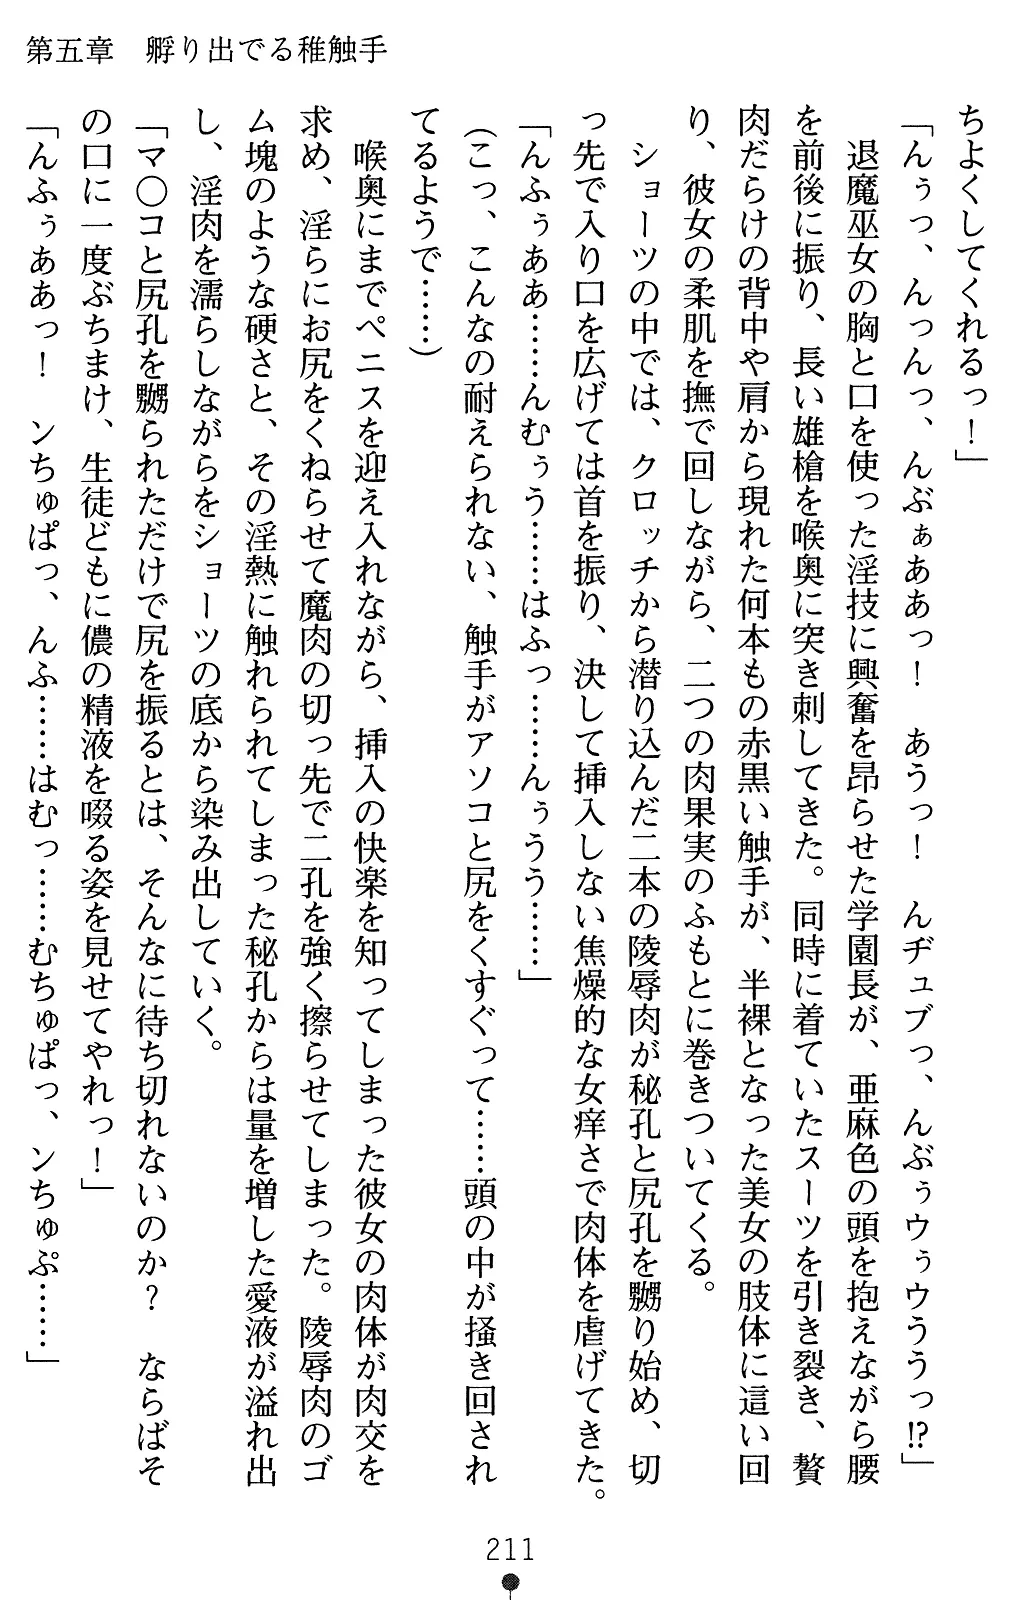 第五章　孵り出でる稚触手
ちよくしてくれるっ！」
「んぅっ、んっんっ、んぶぁああっ！　あうっ！　んヂュブっ、んぶぅウぅウううっ!?」
　退魔巫女の胸と口を使った淫技に興奮を昂らせた学園長が、亜麻色の頭を抱えながら腰
を前後に振り、長い雄槍を喉奥に突き刺してきた。同時に着ていたスーツを引き裂き、贅
肉だらけの背中や肩から現れた何本もの赤黒い触手が、半裸となった美女の肢体に這い回
り、彼女の柔肌を撫で回しながら、二つの肉果実のふもとに巻きついてくる。
　ショーツの中では、クロッチから潜り込んだ二本の陵辱肉が秘孔と尻孔を嬲り始め、切
っ先で入り口を広げては首を振り、決して挿入しない焦燥的な女痒さで肉体を虐げてきた。
「んふぅああ……んむぅう……はふっ……んぅうう……」
（こっ、こんなの耐えられない、触手がアソコと尻をくすぐって……頭の中が掻き回され
てるようで……）
　喉奥にまでペニスを迎え入れながら、挿入の快楽を知ってしまった彼女の肉体が肉交を
求め、淫らにお尻をくねらせて魔肉の切っ先で二孔を強く擦らせてしまった。陵辱肉のゴ
ム塊のような硬さと、その淫熱に触れられてしまった秘孔からは量を増した愛液が溢れ出
し、淫肉を濡らしながらをショーツの底から染み出していく。
「マ〇コと尻孔を嬲られただけで尻を振るとは、そんなに待ち切れないのか？　ならばそ
の口に一度ぶちまけ、生徒どもに儂の精液を啜る姿を見せてやれっ！」
「んふぅああっ！　ンちゅぱっ、んふ……はむっ……むちゅぱっ、ンちゅぷ……」
211